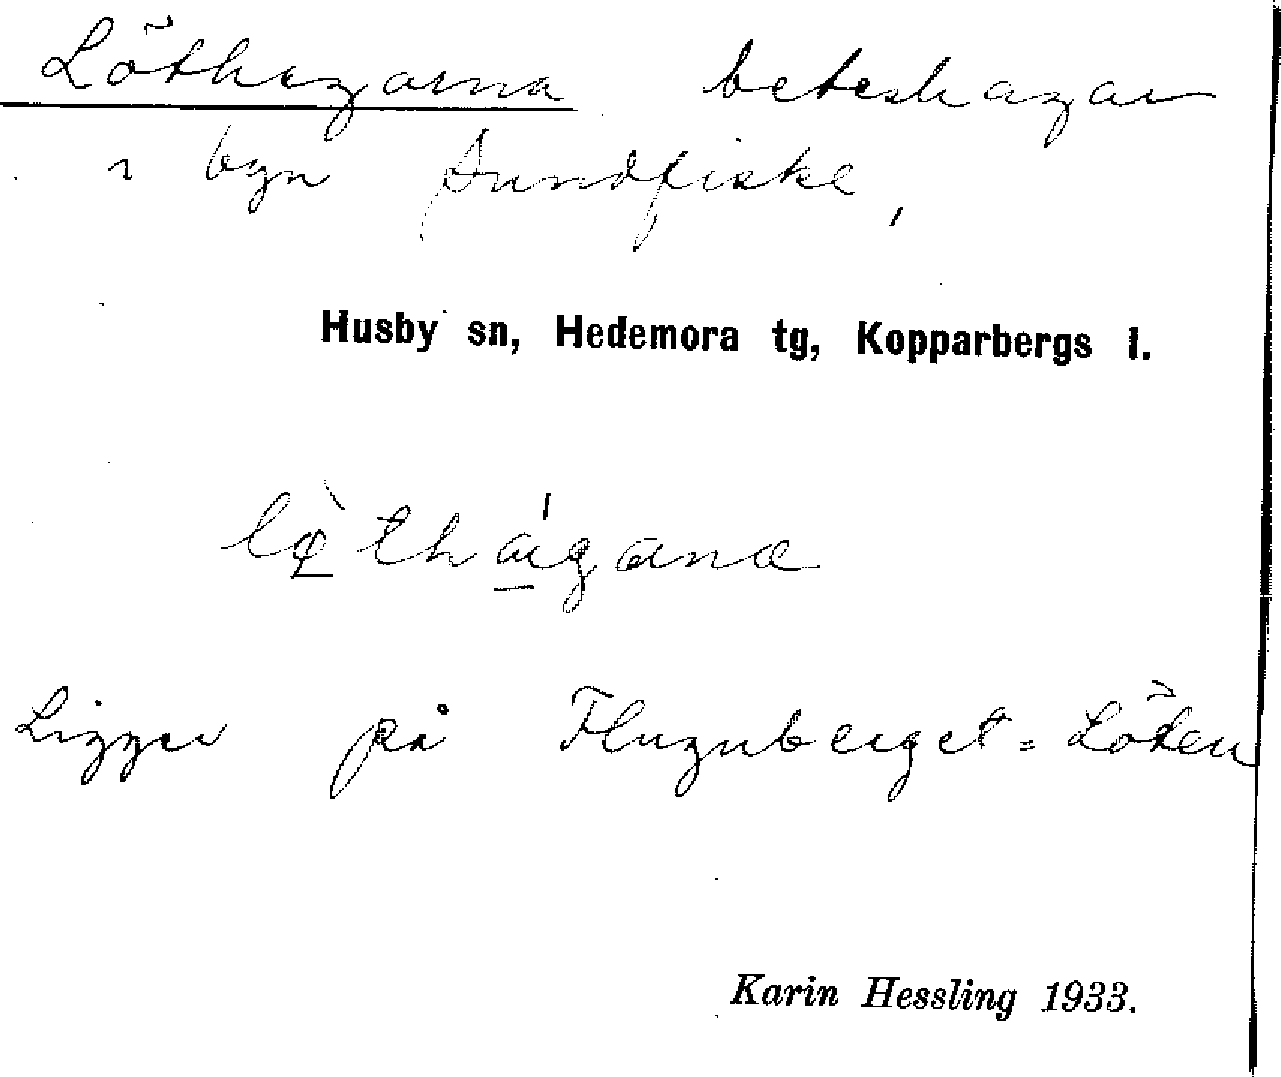 Löthagarna beteshagar
i byn Sundfiske,
Husby sn, Hedemora tg, Kopparbergs l.
Ligger på Flugnberget = Löten
Karin Hessling 1933.